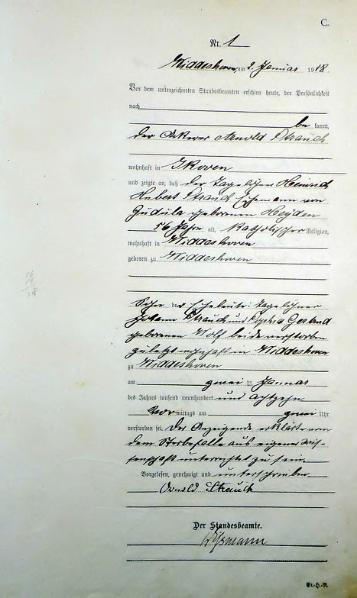 C.
Nr. 1
Widdeshoven am 2. Januar 1918.
Vor dem unterzeichneten Standesbeamten erschien heute, der Persönlichkeit
nach
be kannt,
der Ackerer Arnold Strauch
wohnhaft in Ikoven
und zeigte an, daß der Tagelöhner Heinrich
Hubert Strauch Ehemann von
Gudula geborenen Heyden
56 Jahre alt, katholischer Religion,
wohnhaft in Widdeshoven
geboren zu Widdeshoven
Sohn der Eheleute Tagelöhner
Strauch und Sophia Gertrud
geborenen Wolf beide verstorben
zuletzt wohnhaft in Widdeshoven
zu Widdeshoven
am zwei ten Januar
des Jahres tausend neunhundert und achtzehn
Vor mittags um Uhr
verstorben sei. Der Anzeigende erklärte von
dem Sterbefalle aus eigener Wis-
senschaft unterrichtet zu sein.
Vorgelesen, genehmigt und unterschrieben
Arnold Strauch
Der Standesbeamte.